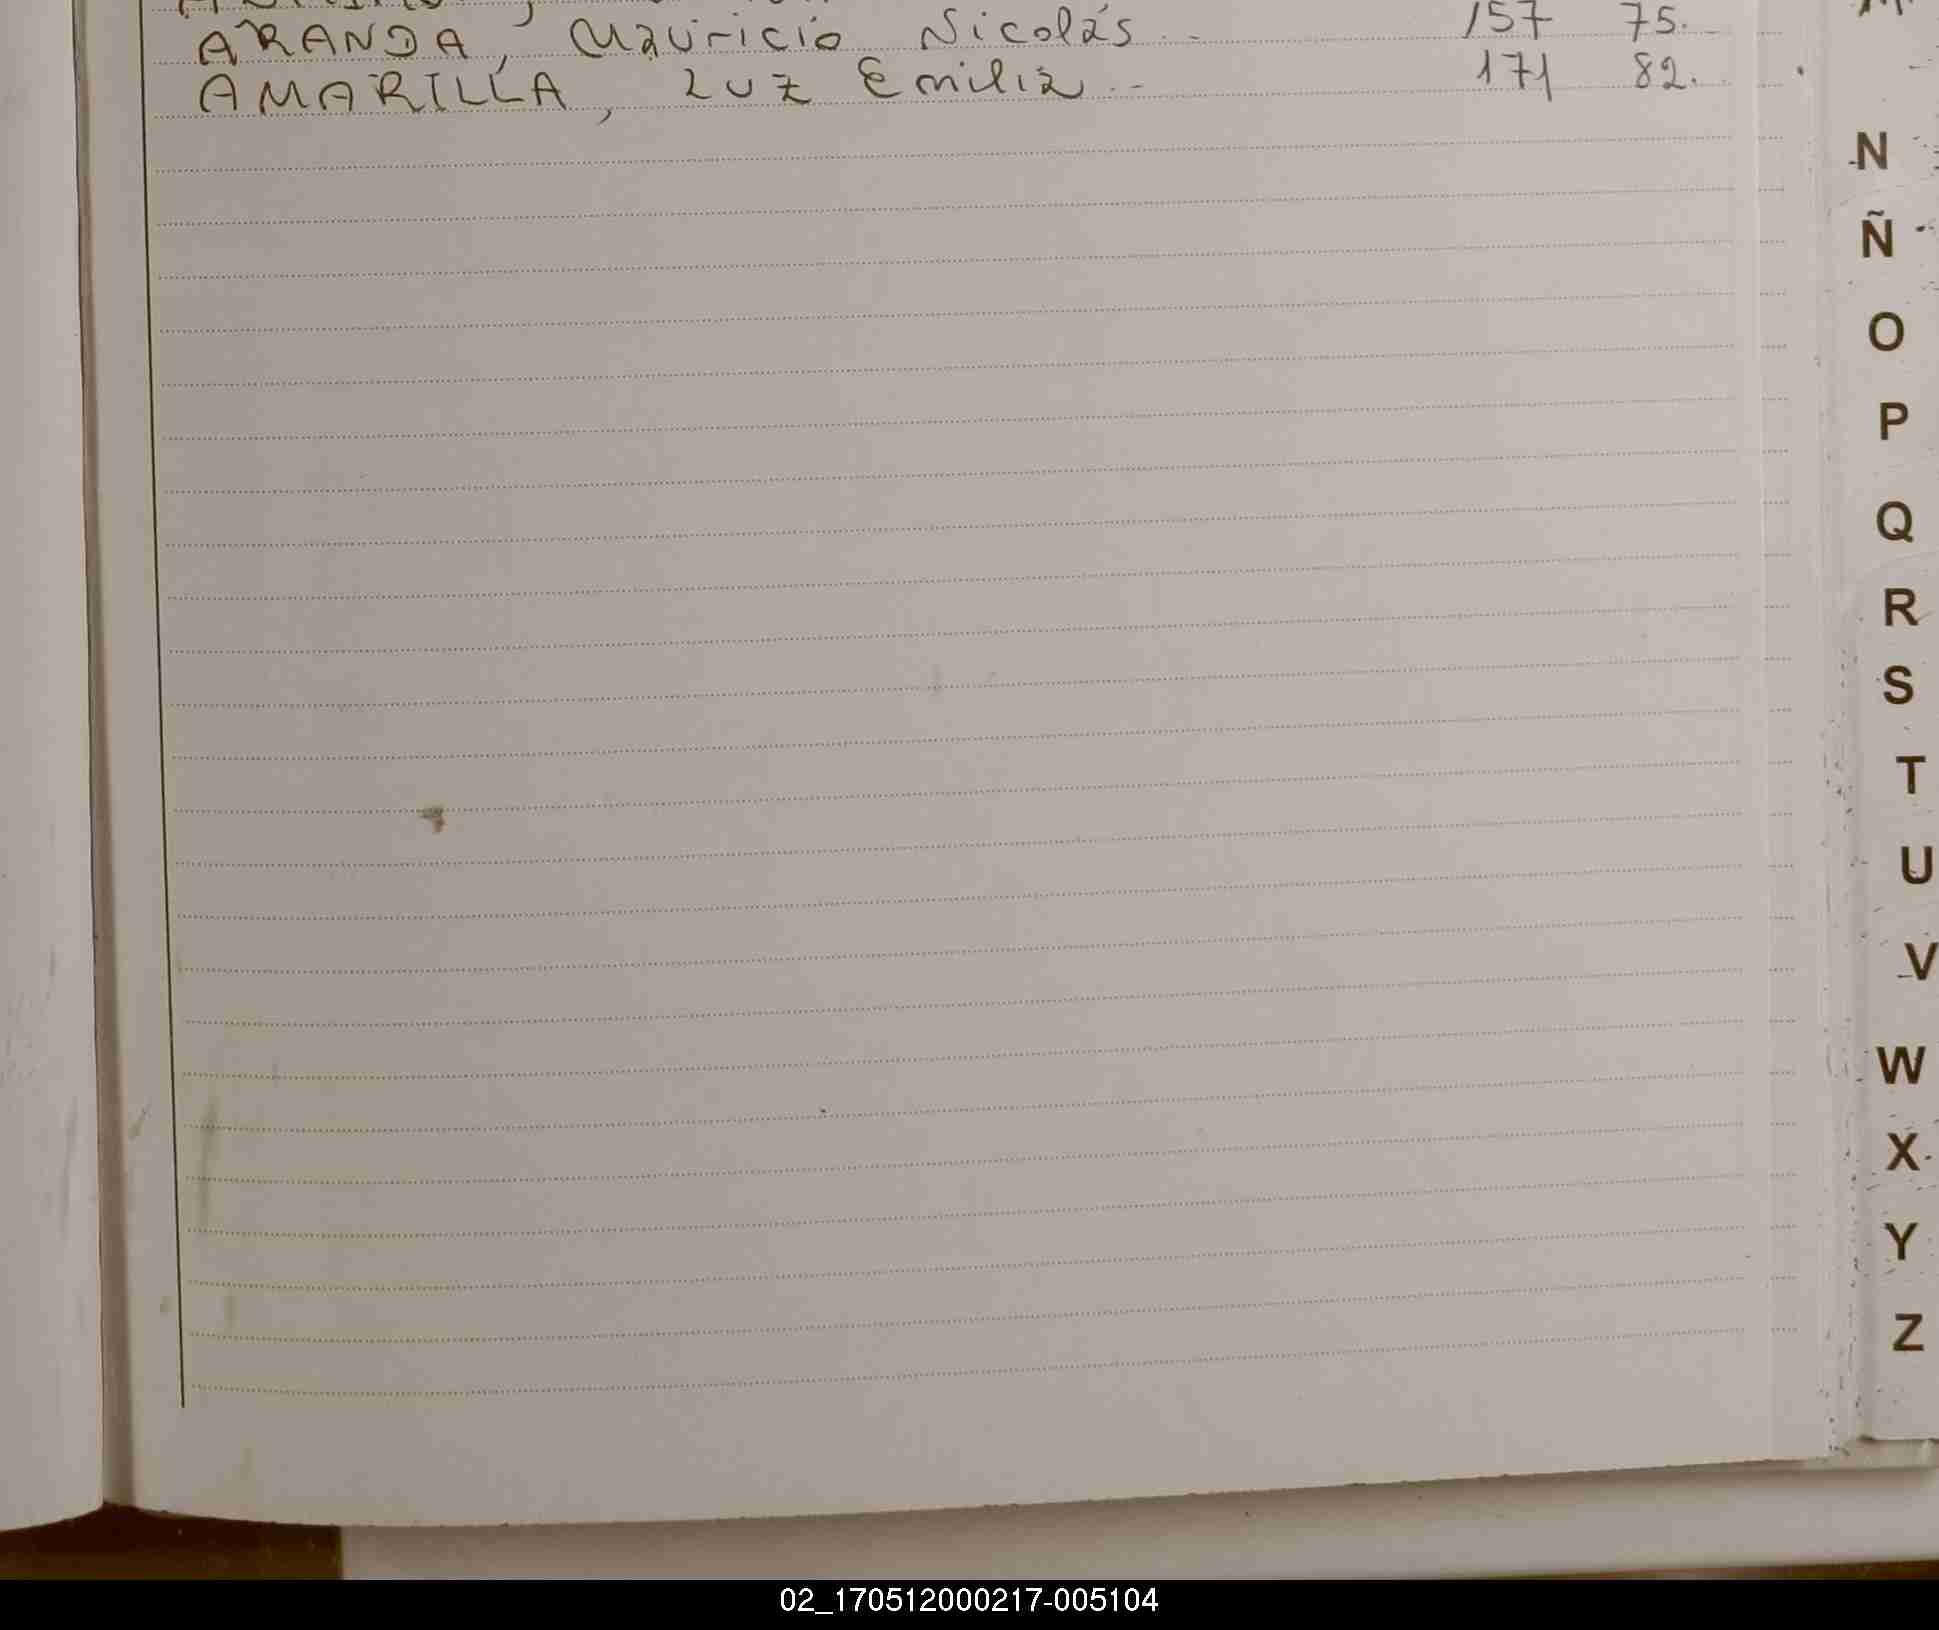 ARANDA, Mauricio Nicolás.. 157 75.
AMARILLA, Luz Emilia.. 171 82.
N
Ñ
O
P
Q
R
S
T
U
V
W
X
Y
Z
02_170512000217-005104